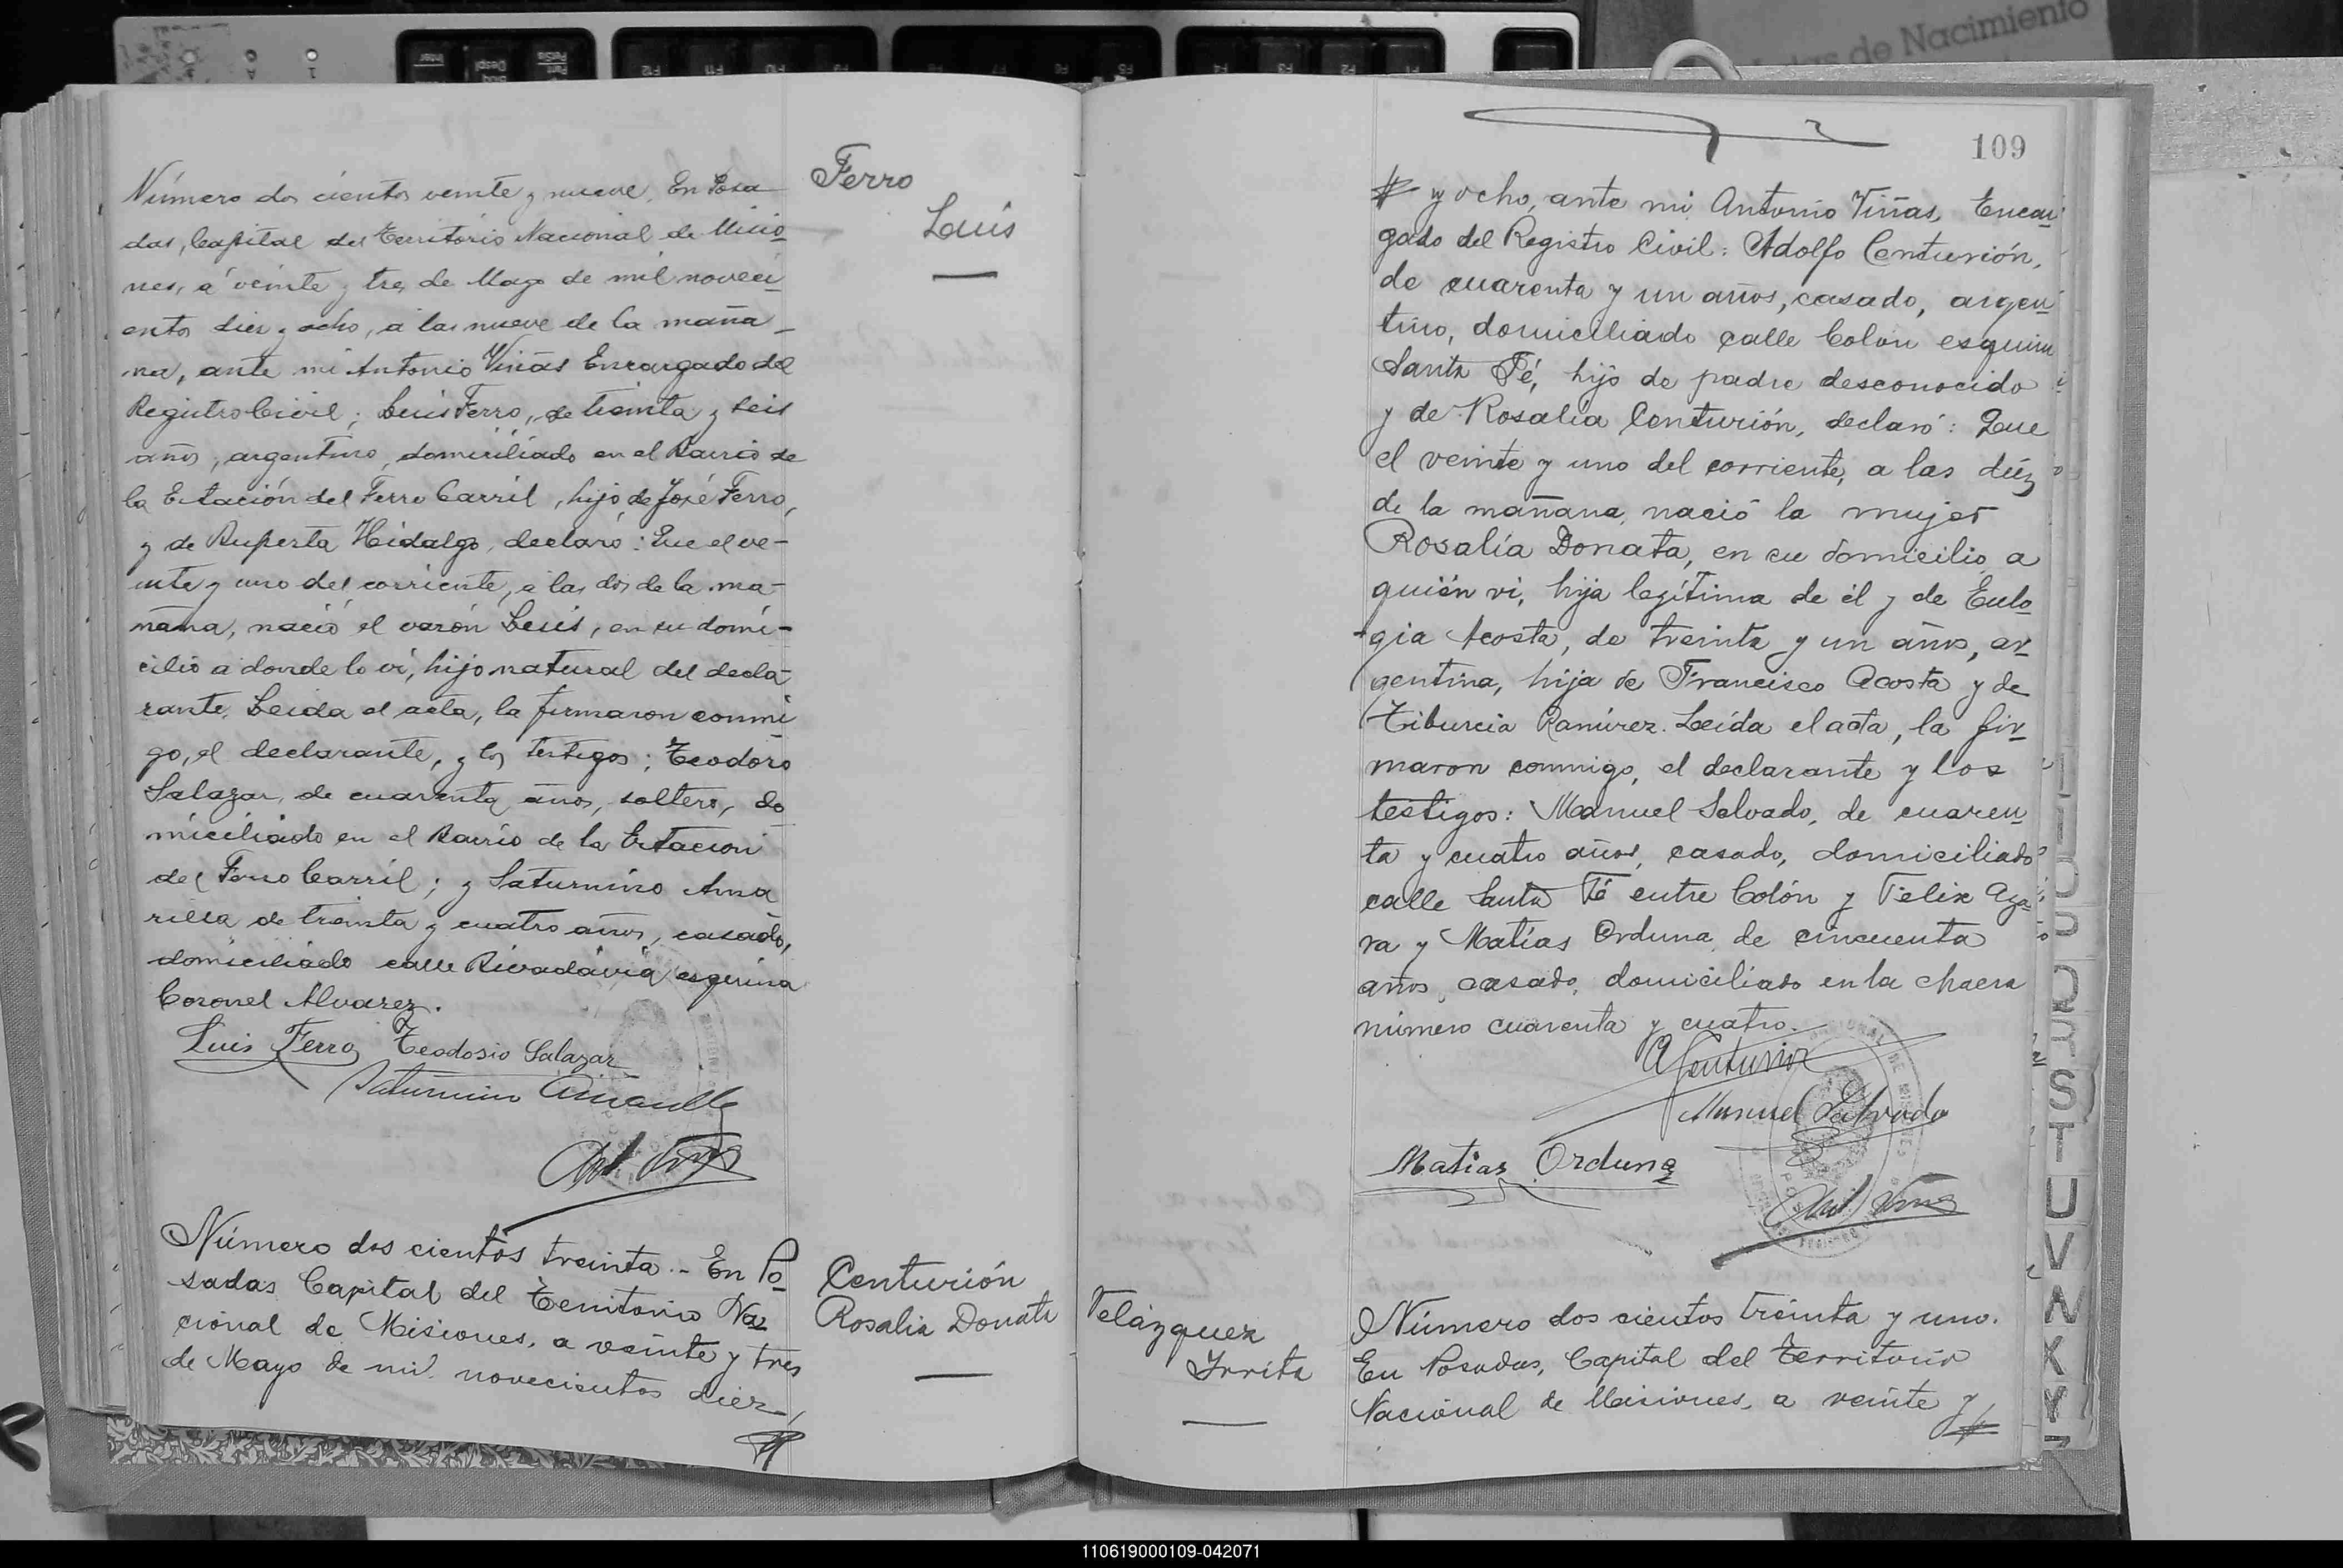 Número dos cientos veinte y nueve. En Posa
das, Capital del Territorio Nacional de Misio
nes, á veinte y tres de Mayo de mil noveci
entos diez y ocho, a las nueve de la maña
na, ante mi Antonio Viñas Encargado del
Registro Civil; Luis Ferro, de treinta y seis
años, argentino, domiciliado en el Barrio de
la Estación del Ferro Carril, hijo de José Ferro,
y de Ruperta Hidalgo, declaró: Que el ve-
inte y uno del corriente, a las dos de la ma-
ñana, nació el varón Luis, en su domi-
cilio a donde lo vi, hijo natural del decla
rante. Leida el acta, la firmaron conmi
go, el declarante, y los testigos; Teodoro
Salazar, de cuarenta años, soltero, do
miciliado en el Barrio de la Estacion
del Ferro Carril; y Saturnino Ama
rilla de treinta y cuatro años, casado,
domiciliado calle Rivadavia esquina
Coronel Alvarez.
Luis Ferro Teodosio Salazar
Saturnino Amarilla
Ant Viñas
Ferro
Luis
Número dos cientos treinta.- En Po
sadas Capital del Territorio Na
cional de Misiones, a veinte y tres
de Mayo de mil novecientos diez
Centurión
Rosalia Donata
109
y ocho, ante mi Antonio Viñas, Encar
gado del Registro Civil: Adolfo Centurión,
de cuarenta y un años, casado, argen
tino, domiciliado calle Colón esquina
Santa Fé, hijo de padre desconocido
y de Rosalía Centurión, declaró: Que
el veinte y uno del corriente, a las diéz
de la mañana, nació la mujer
Rosalía Donata, en su domicilio a
quién vi, hija legítima de él y de Eulo
gia Acosta, de treinta y un años, ar
gentina, hija de Francisco Acosta y de
Tiburcia Ramírez. Leída el acta, la fir
maron conmigo, el declarante y los
testigos: Manuel Salvado, de cuaren
ta y cuatro años, casado, domiciliado
calle Santa Fé entre Colón y Felix Aza
ra y Matías Orduna, de cincuenta
años, casado, domiciliado en la chacra
número cuarenta y cuatro.
A Centurión
Manuel Salvado
Matias Orduna
Ant Viñas
Velázquez
Irrita
Número dos cientos treinta y uno.
En Posadas, Capital del Territorio
Nacional de Misiones, a veinte y
Q
R
S
T
U
V
W
X
Y
Z
110619000109-042071